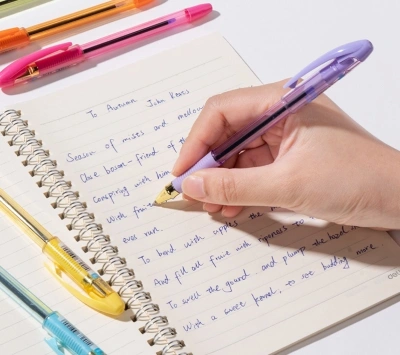 To Autumn John Keats
Season of mists and mellow
Close bosom-friend of th
Conspiring with him
With fru
eves run.
To bend with apples the
And fill all fruit with ripeness to
To swell the gourd, and plump the hazel
With a sweet kernel, to set budding more